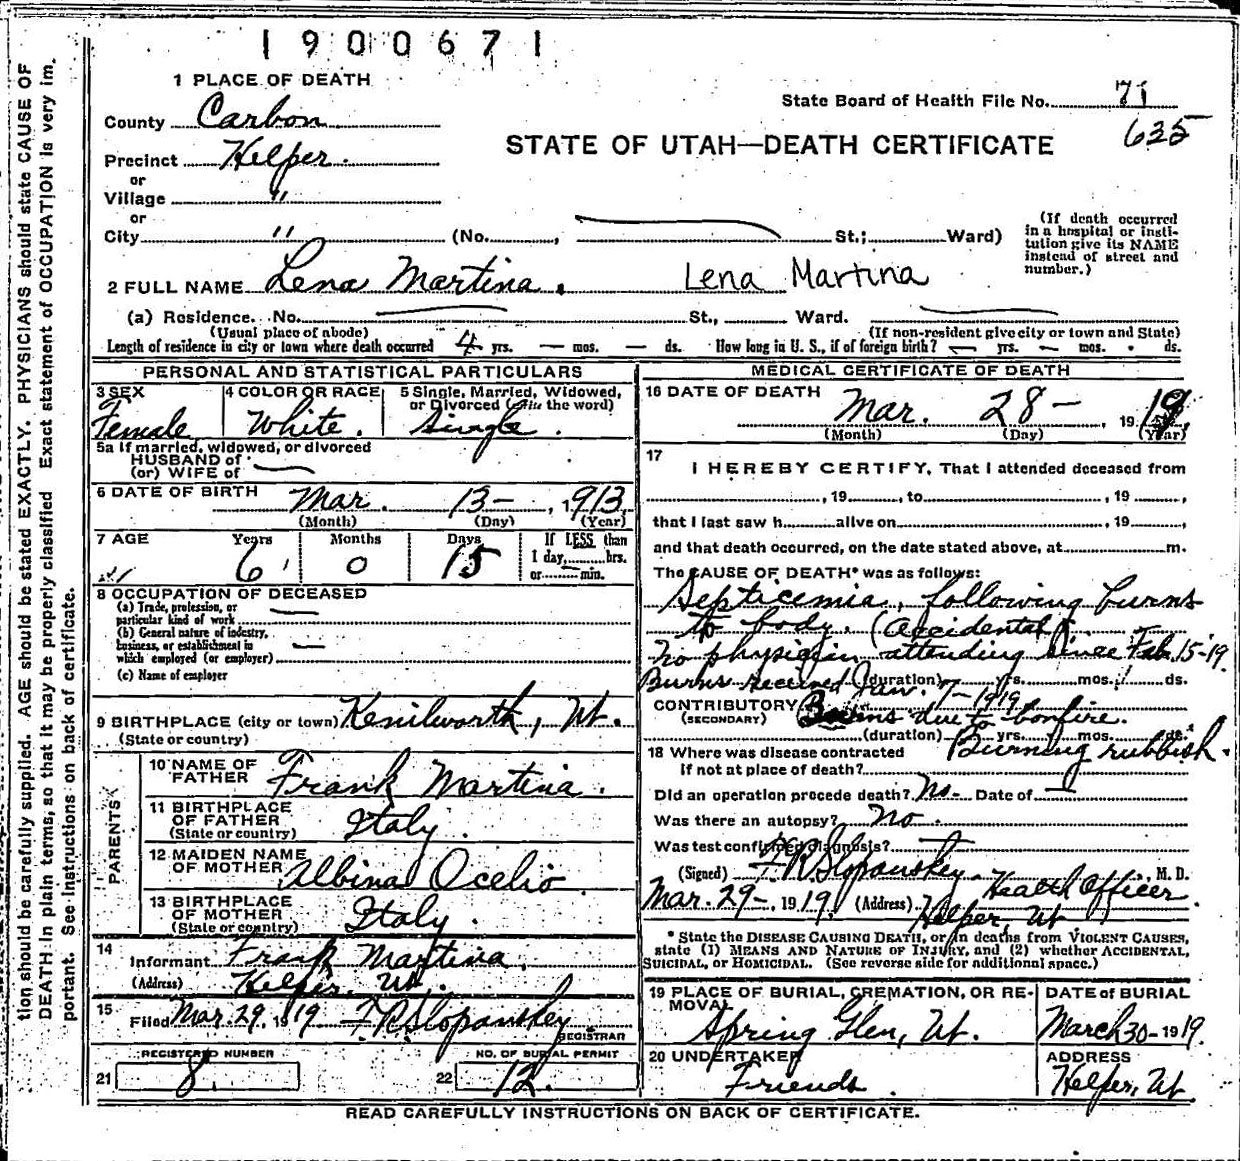 1900671
1 PLACE OF DEATH
State Board of Health File No. 71
635
County Carbon
STATE OF UTAH—DEATH CERTIFICATE
Precinct Helper.
or
Village "
or
City " (No. , St.; Ward)
(If death occurred in a hospital or insti-
tution give its NAME
instead of street and
number.)
2 FULL NAME Lena Martina. Lena Martina
(a) Residence. No. St., Ward.
(Usual place of abode) (If non-resident give city or town and State)
Length of residence in city or town where death occurred 4 yrs. — mos. — ds. How long in U. S., if of foreign birth? — yrs. — mos. ds.
PERSONAL AND STATISTICAL PARTICULARS
3 SEX Female
4 COLOR OR RACE White.
5 Single, Married, Widowed,
or Divorced (Write the word)
Single.
5a If married, widowed, or divorced
HUSBAND of
(or) WIFE of —
6 DATE OF BIRTH Mar. 13- , 1913
(Month) (Day) (Year)
7 AGE Years Months Days If LESS than
6 0 15 1 day, hrs.
or min.
8 OCCUPATION OF DECEASED
(a) Trade, profession, or
particular kind of work —
(b) General nature of industry,
business, or establishment in —
which employed (or employer)
(c) Name of employer
9 BIRTHPLACE (city or town) Kenilworth, Ut.
(State or country)
PARENTS
10 NAME OF
FATHER Frank Martina.
11 BIRTHPLACE
OF FATHER Italy.
(State or country)
12 MAIDEN NAME
OF MOTHER Albina Ocelio.
13 BIRTHPLACE
OF MOTHER Italy.
(State or country)
14 Informant Frank Martina.
(Address) Helper, Ut.
15 Filed Mar. 29, 1919 F.R. Slopanskey
REGISTRAR
REGISTERED NUMBER
21 8.
NO. OF BURIAL PERMIT
22 12.
MEDICAL CERTIFICATE OF DEATH
16 DATE OF DEATH Mar. 28- , 1919
(Month) (Day) (Year)
17 I HEREBY CERTIFY, That I attended deceased from
, 19 , to , 19 ,
that I last saw h alive on , 19 ,
and that death occurred, on the date stated above, at m.
The CAUSE OF DEATH* was as follows:
Septicemia, following burns
to body. (Accidental).
No physician attending since Feb. 15-'19.
Burns received Jan. 7-1919
(duration) yrs. mos. ds.
CONTRIBUTORY Burns due to bonfire.
(SECONDARY)
(duration) yrs. mos. ds.
Burning rubbish.
18 Where was disease contracted
if not at place of death?
Did an operation precede death? No- Date of —
Was there an autopsy? No.
Was test confirmed diagnosis? —
(Signed) F.R. Slopanskey. , M. D.
Health Officer.
Mar. 29-, 1919, (Address) Helper, Ut
* State the DISEASE CAUSING DEATH, or in deaths from VIOLENT CAUSES,
state (1) MEANS AND NATURE OF INJURY, and (2) whether ACCIDENTAL,
SUICIDAL, or HOMICIDAL. (See reverse side for additional space.)
19 PLACE OF BURIAL, CREMATION, OR RE-
MOVAL
Spring Glen, Ut.
DATE of BURIAL
March 30-1919.
20 UNDERTAKER
Friends.
ADDRESS
Helper, Ut
READ CAREFULLY INSTRUCTIONS ON BACK OF CERTIFICATE.
tion should be carefully supplied. AGE should be stated EXACTLY. PHYSICIANS should state CAUSE OF
DEATH in plain terms, so that it may be properly classified Exact statement of OCCUPATION is very im.
portant. See Instructions on back of certificate.